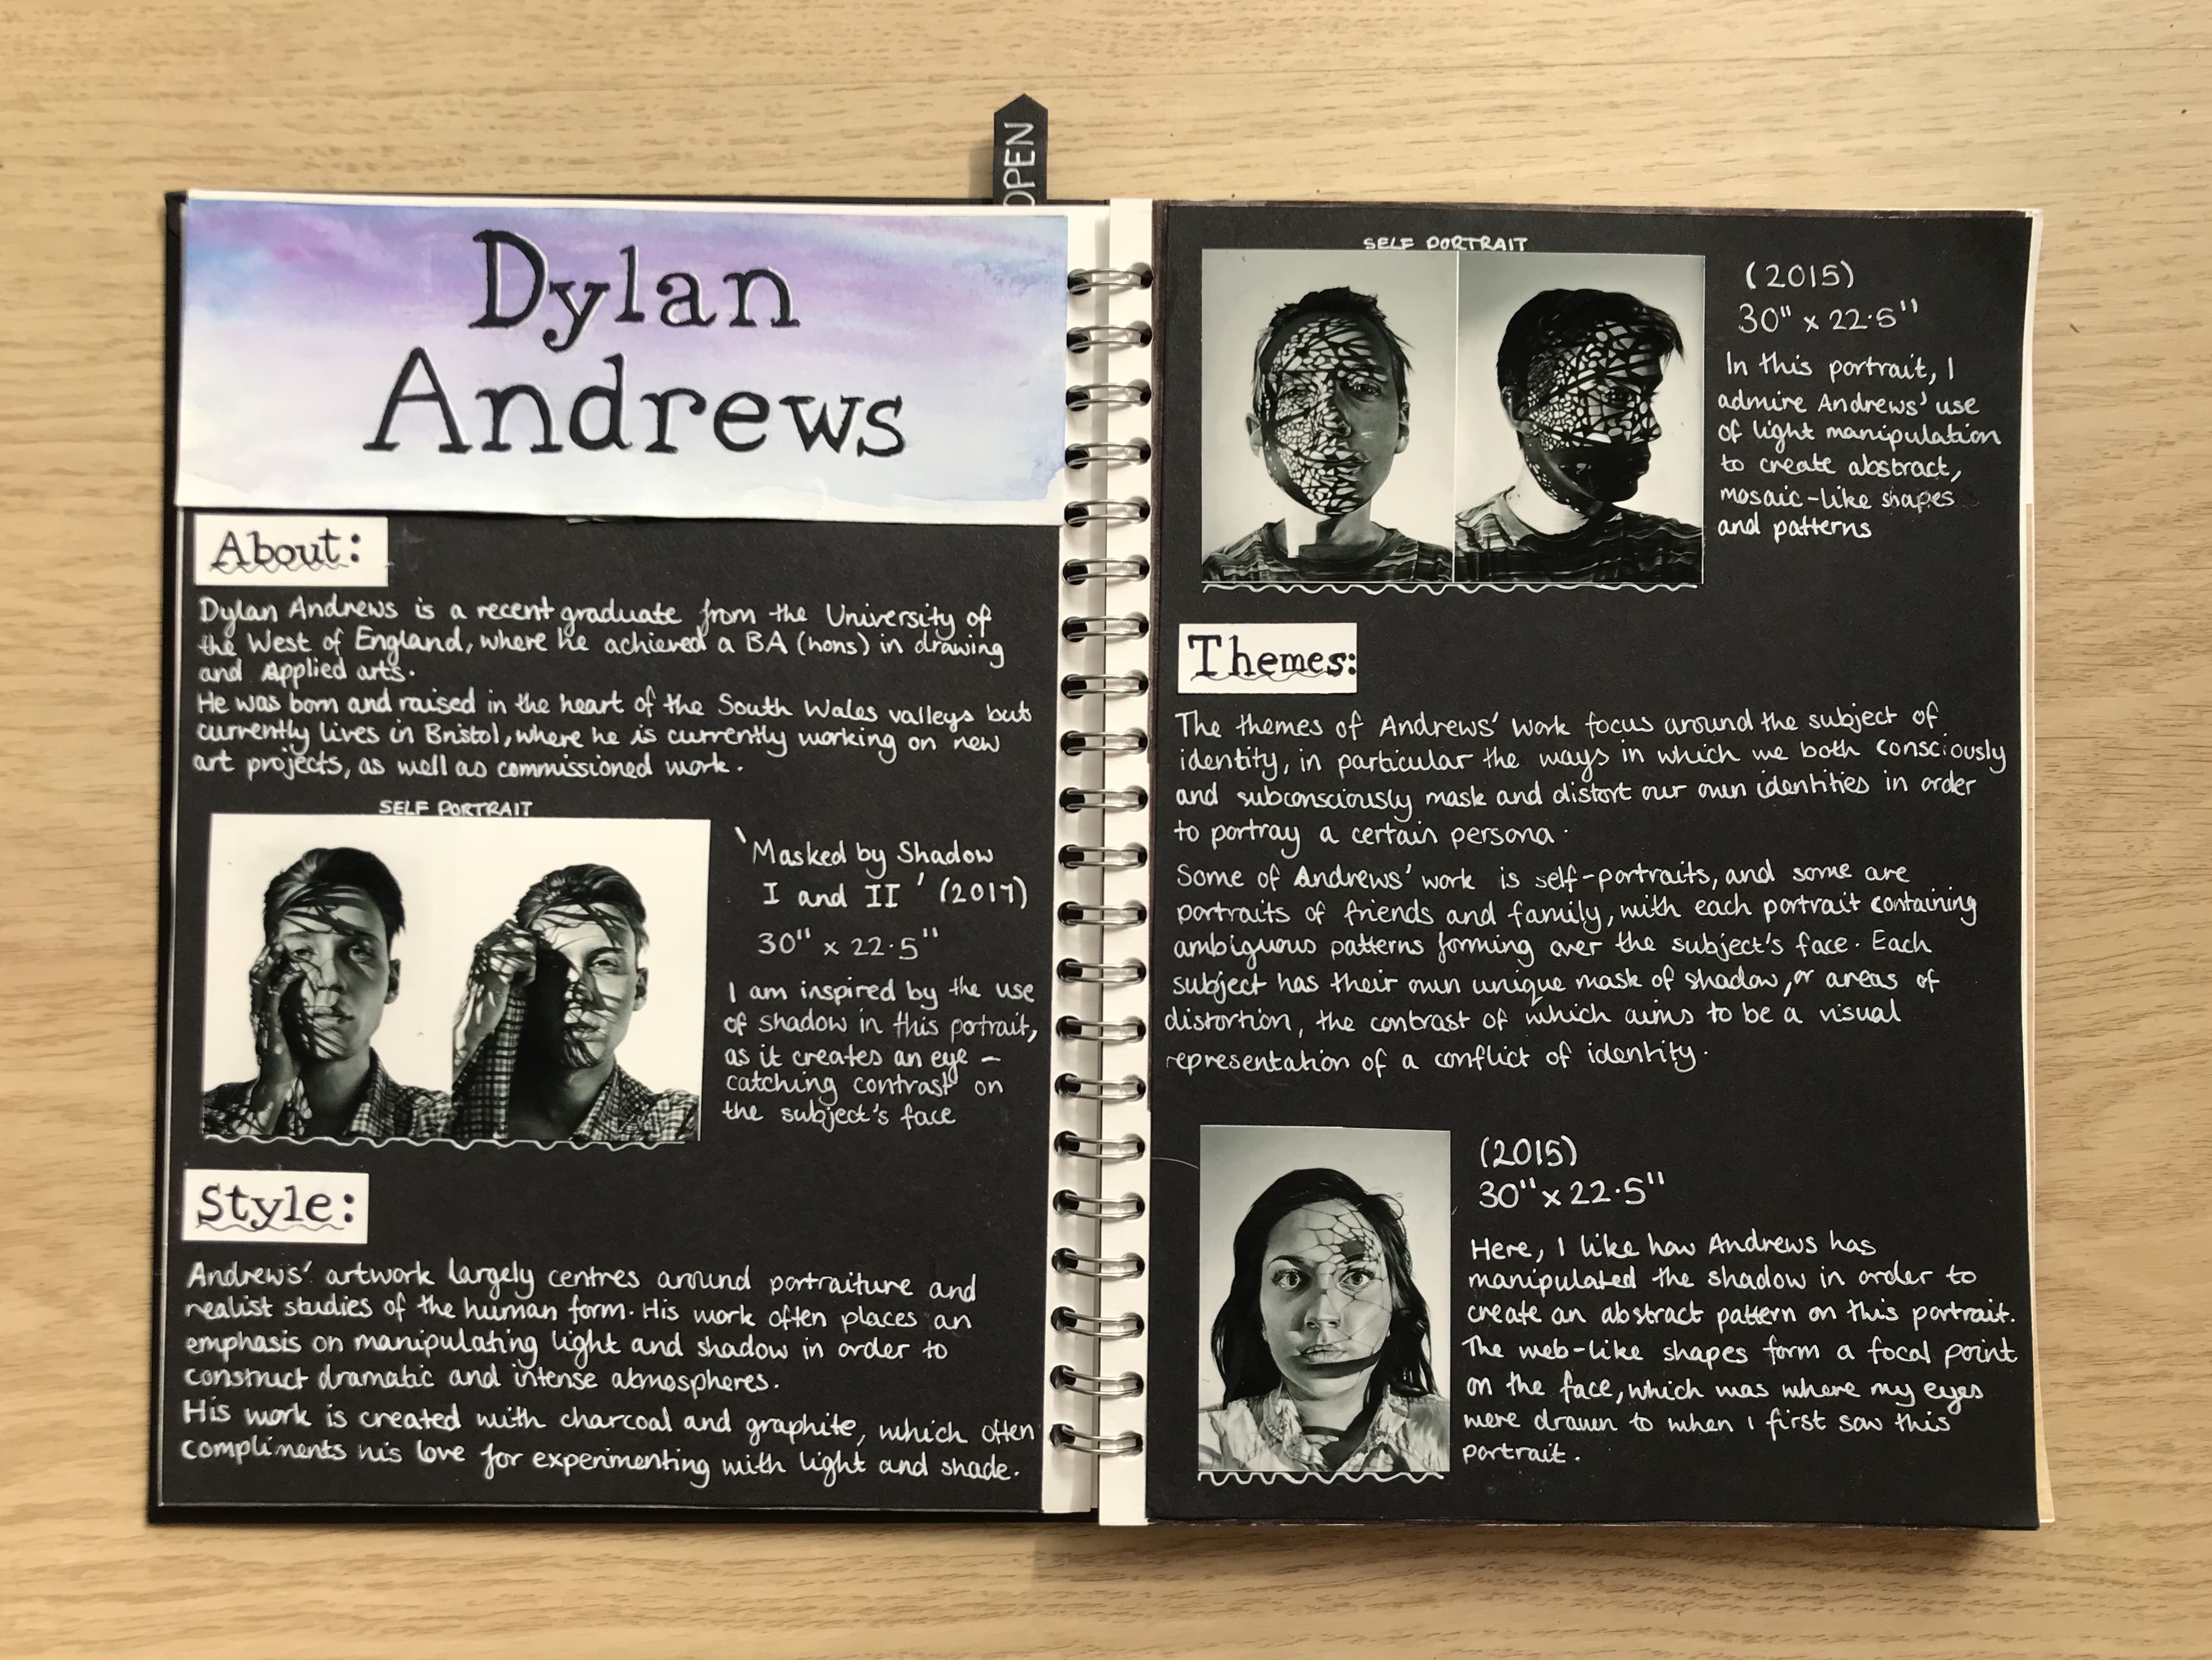 OPEN
Dylan
Andrews
About:
Dylan Andrews is a recent graduate from the University of
the West of England, where he achieved a BA (hons) in drawing
and Applied arts.
He was born and raised in the heart of the South Wales valleys but
currently lives in Bristol, where he is currently working on new
art projects, as well as commissioned work.
SELF PORTRAIT
'Masked by Shadow
I and II' (2017)
30" x 22.5"
I am inspired by the use
of shadow in this portrait,
as it creates an eye-
catching contrast on
the subject's face
Style:
Andrews' artwork largely centres around portraiture and
realist studies of the human form. His work often places an
emphasis on manipulating light and shadow in order to
construct dramatic and intense atmospheres.
His work is created with charcoal and graphite, which often
compliments his love for experimenting with light and shade.
SELF PORTRAIT
(2015)
30" x 22.5"
In this portrait, I
admire Andrews' use
of light manipulation
to create abstract,
mosaic-like shapes
and patterns
Themes:
The themes of Andrews' work focus around the subject of
identity, in particular the ways in which we both consciously
and subconsciously mask and distort our own identities in order
to portray a certain persona.
Some of Andrews' work is self-portraits, and some are
portraits of friends and family, with each portrait containing
ambiguous patterns forming over the subject's face. Each
subject has their own unique mask of shadow, or areas of
distortion, the contrast of which aims to be a visual
representation of a conflict of identity.
(2015)
30" x 22.5"
Here, I like how Andrews has
manipulated the shadow in order to
create an abstract pattern on this portrait.
The web-like shapes form a focal point
on the face, which was where my eyes
were drawn to when I first saw this
portrait.